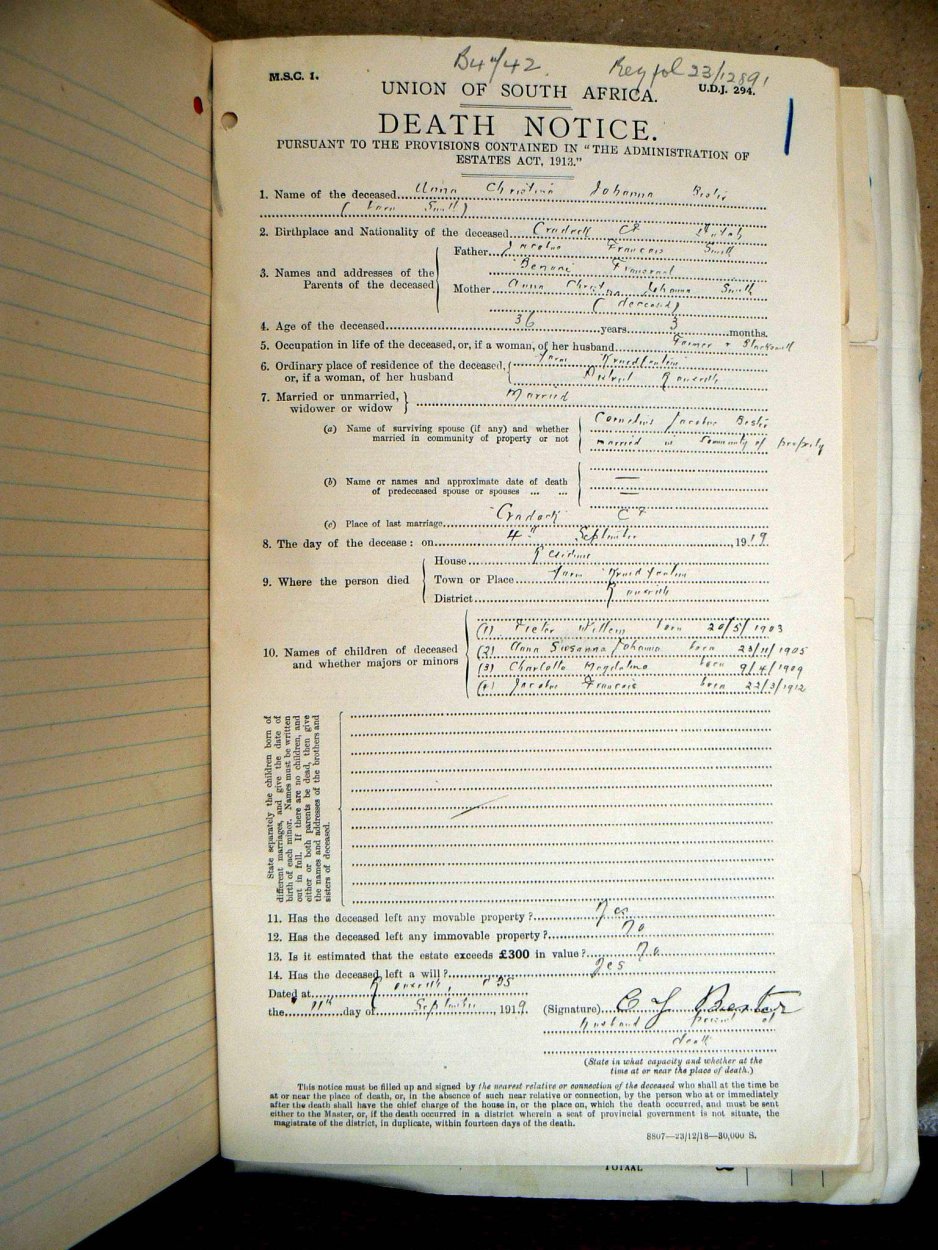 B4/42. Reg fol 23/1289
M.S.C. 1.
UNION OF SOUTH AFRICA.
U.D.J. 294.
DEATH NOTICE.
PURSUANT TO THE PROVISIONS CONTAINED IN "THE ADMINISTRATION OF
ESTATES ACT, 1913."
1. Name of the deceased Anna Christina Johanna Bester
(born Smit)
2. Birthplace and Nationality of the deceased Cradock CP Dutch
3. Names and addresses of the Parents of the deceased
Father Jacobus Francois Smit
Benoni Transvaal
Mother Anna Christina Johanna Smit
(deceased)
4. Age of the deceased 36 years 3 months.
5. Occupation in life of the deceased, or, if a woman, of her husband Farmer &
6. Ordinary place of residence of the deceased, Farm
or, if a woman, of her husband District Rouxville
7. Married or unmarried, widower or widow Married
(a) Name of surviving spouse (if any) and whether Cornelius Jacobus Bester
married in community of property or not married in community of property
(b) Name or names and approximate date of death
of predeceased spouse or spouses ... ...
(c) Place of last marriage Cradock CP
8. The day of the decease: on 4th September, 1919
9. Where the person died
House Residence
Town or Place Farm
District Rouxville
10. Names of children of deceased and whether majors or minors
(1) Pieter Willem born 20/5/1903
(2) Anna Susanna Johanna born 23/11/1905
(3) Charlotta Magdalena born 9/4/1909
(4) Jacobus Francois born 22/3/1912
State separately the children born of
different marriages, and give the date of
birth of each minor. Names must be written
out in full. If there are no children, and
either or both parents be dead, then give
the names and addresses of the brothers and
sisters of deceased.
11. Has the deceased left any movable property? Yes
12. Has the deceased left any immovable property? No
13. Is it estimated that the estate exceeds £300 in value? No
14. Has the deceased left a will? Yes
Dated at Rouxville,
the 11th day of September, 1919. (Signature) C J Bester
husband present at
death
(State in what capacity and whether at the
time at or near the place of death.)
This notice must be filled up and signed by the nearest relative or connection of the deceased who shall at the time be
at or near the place of death, or, in the absence of such near relative or connection, by the person who at or immediately
after the death shall have the chief charge of the house in, or the place on, which the death occurred, and must be sent
either to the Master, or, if the death occurred in a district wherein a seat of provincial government is not situate, the
magistrate of the district, in duplicate, within fourteen days of the death.
8807—23/12/18—30,000 S.
TOTAAL